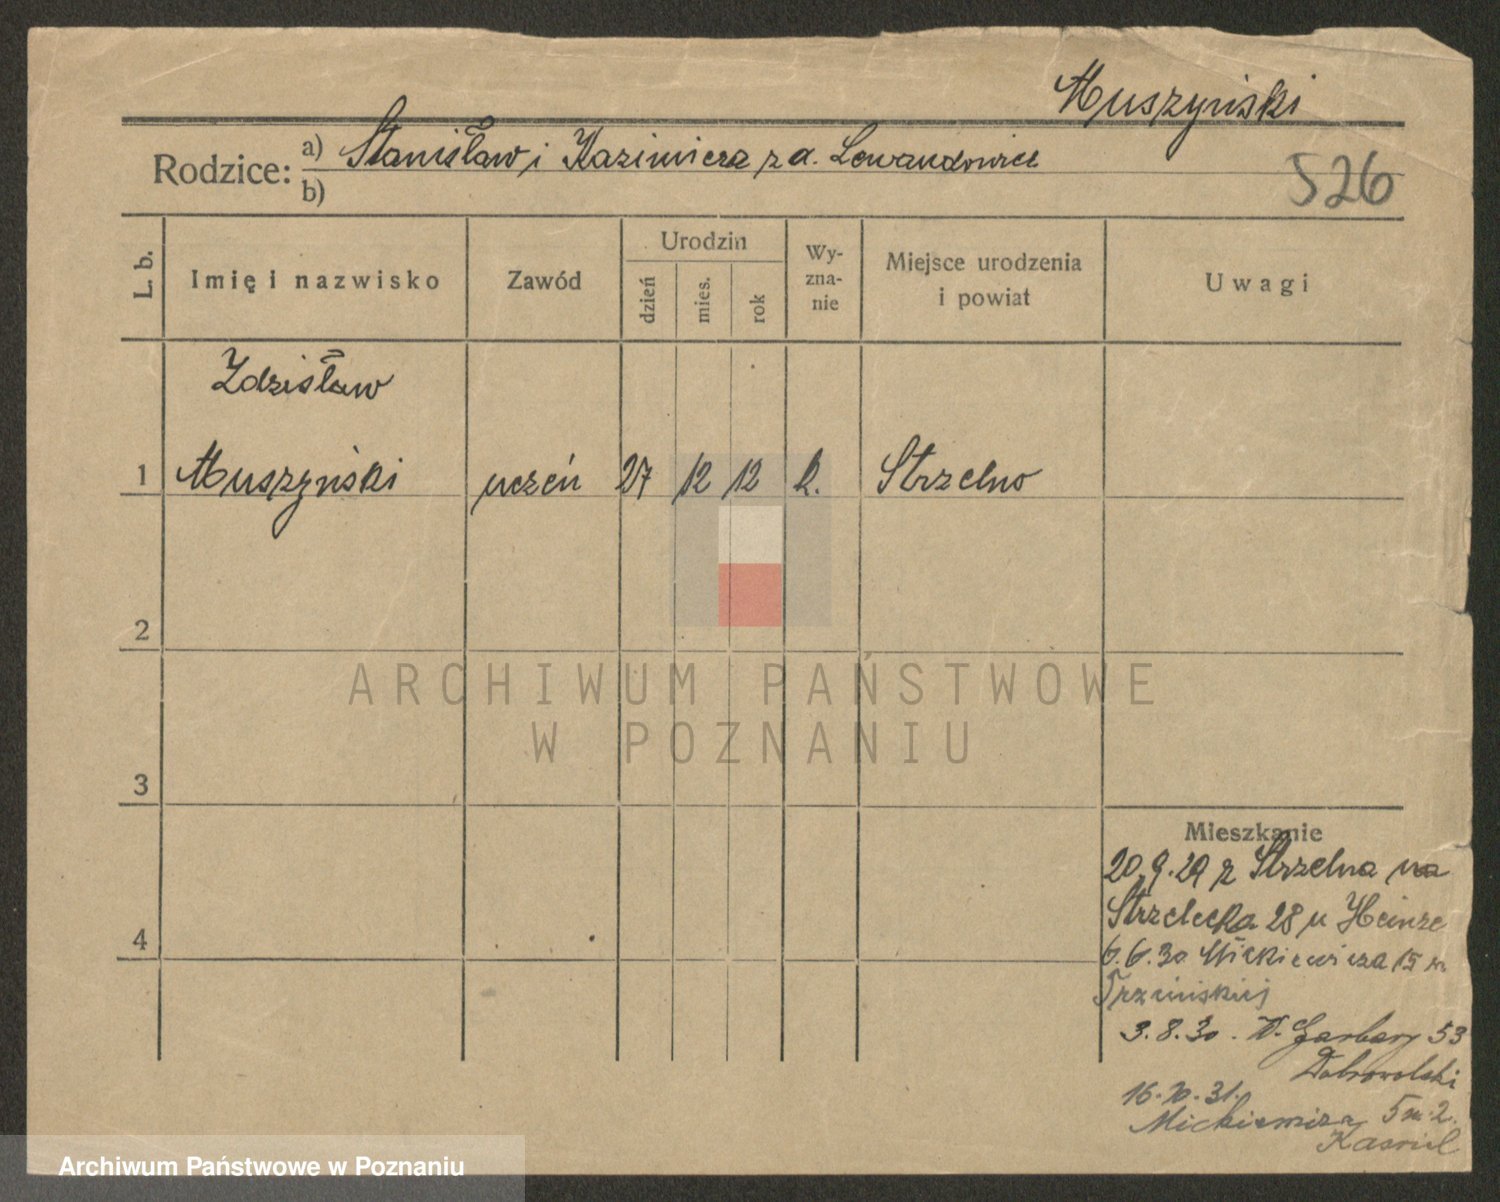 Muszyński
Rodzice: a) Stanisław i Kazimiera z d. Lewandowicz
b)
526
L. b.
Imię i nazwisko
Zawód
Urodzin
dzień
mies.
rok
Wy-
zna-
nie
Miejsce urodzenia
i powiat
Uwagi
Zdzisław
1 Muszyński uczeń 27 12 12 k. Strzelno
2
3
4
ARCHIWUM PAŃSTWOWE
W POZNANIU
Mieszkanie
20.9.29 z Strzelna na
Strzelecka 28 u Heinze
6.6.30 Mickiewicza 15 u
Trzcińskiej
3.8.30. W. Garbary 53
Dobrowolski
16.10.31.
Mickiewicza 5 m 2.
Archiwum Państwowe w Poznaniu